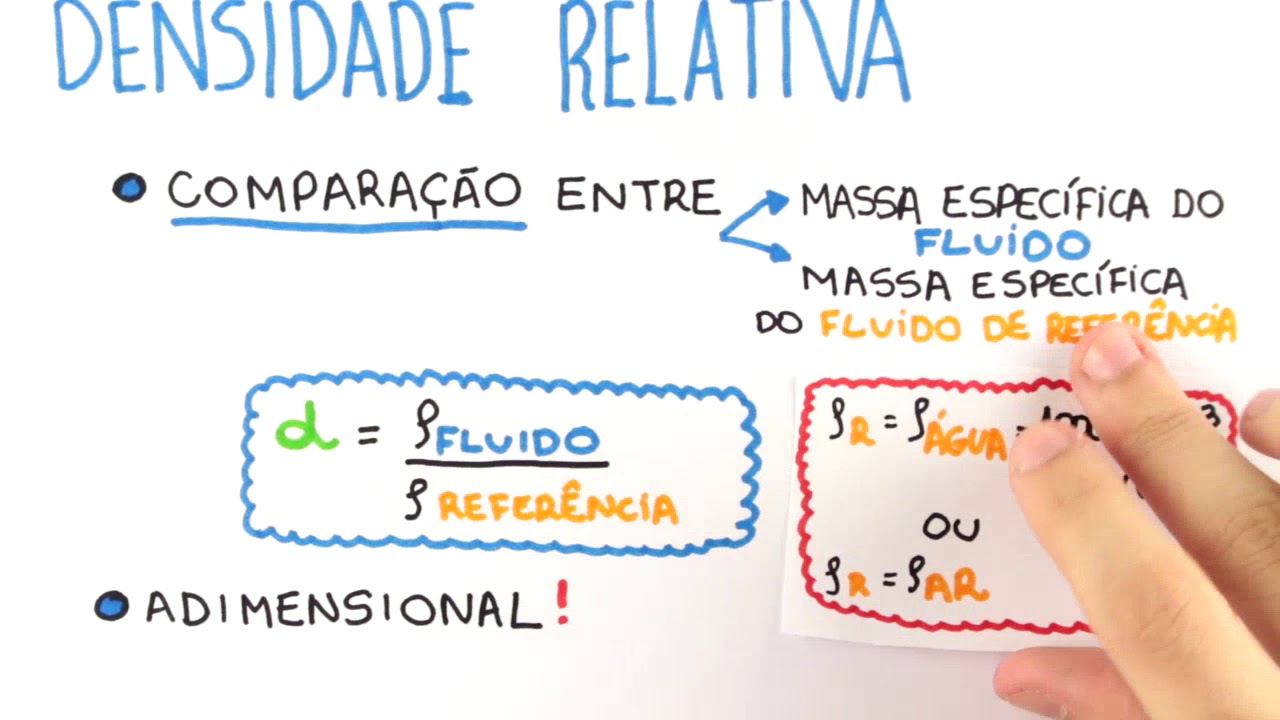 DENSIDADE RELATIVA
COMPARAÇÃO ENTRE
MASSA ESPECÍFICA DO
FLUÍDO
MASSA ESPECÍFICA
DO FLUIDO DE REFERÊNCIA
d = ρFLUIDO
ρREFERÊNCIA
ADIMENSIONAL!
ρR = ρÁGUA =
OU
ρR = ρAR